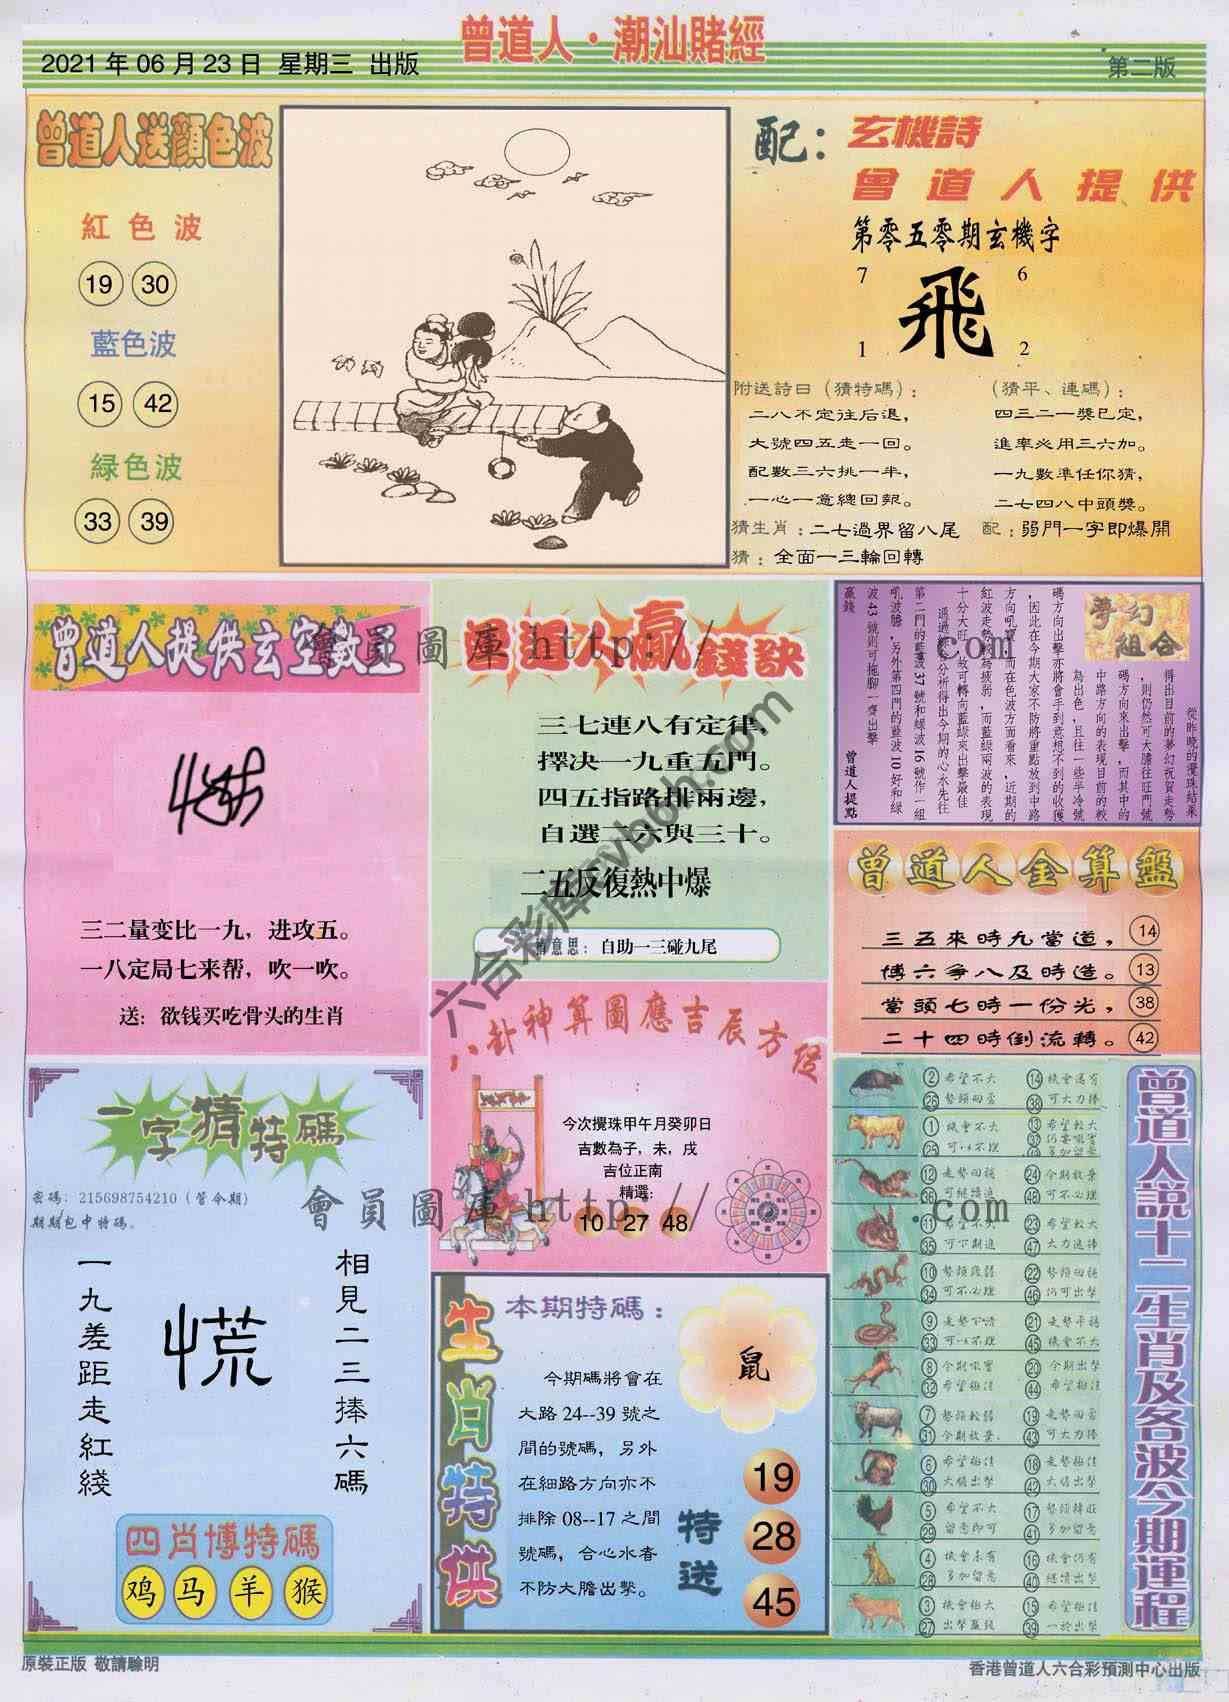 曾道人·潮汕賭經
2021 年 06 月 23 日 星期三 出版
第二版
曾道人送顏色波
紅色波
19 30
藍色波
15 42
緑色波
33 39
配：
玄機詩
曾道人提供
第零五零期玄機字
7 6
飛
1 2
附送詩曰（猜特碼）：
二八不定往后退，
大號四五走一回。
配數三六挑一半，
一心一意總回報。
（猜平、連碼）：
四三二一獎已定，
進率必用三六加。
一九數準任你猜，
二七四八中頭獎。
猜生肖：二七過界留八尾 配：弱門一字即爆開
猜：全面一三輪回轉
曾道人提供玄空數王
三二量变比一九，进攻五。
一八定局七来帮，吹一吹。
送：欲钱买吃骨头的生肖
曾道人贏錢訣
三七連八有定律，
擇决一九重五門。
四五指路排兩邊，
自選二六與三十。
二五反復熱中爆
曾意思：自助一三碰九尾
夢幻組合
從昨晚的攪珠結果
得出目前的夢幻祝賀走勢
，則仍然可大膽往旺門號
碼方向來出擊，而其中的
中路方向的表現目前的較
為出色，且往一些半冷號
碼方向出擊亦將會手到意想不到的收獲
，因此在今期大家不防將重點放到中路
方向吼寶，而在色波方面看來，近期的
紅波走勢較為疲弱，而藍綠兩波的表現
十分大旺，故可轉向藍綠來出擊最佳
通過綜合分析得出今期的心水先往
第二門的藍波37號和緑波16號作一組
吼波膽，另外第四門的藍波10好和緑
波43號則可拖腳一齊出擊
贏錢
曾道人提點
曾道人金算盤
三五來時九當道， 14
博六爭八及時造。 13
當頭七時一份光， 38
二十四時倒流轉。 42
八卦神算圖應吉辰方位
今次攪珠甲午月癸卯日
吉數為子，未，戌
吉位正南
精選：
10 27 48
一字猜特碼
密碼：215698754210（管令期）
期期包中特碼。
相見二三捧六碼
慌
一九差距走紅綫
四肖博特碼
鸡 马 羊 猴
生肖特供
本期特碼：
鼠
今期碼將會在
大路 24--39 號之
間的號碼，另外
在細路方向亦不
排除 08--17 之間
號碼，合心水者
不防大膽出擊。
特送
19
28
45
曾道人説十二生肖及各波今期運程
2 希望不大 14 機會還有
26 勢頭回落 38 可大力捧
1 機會不大 13 希望較大
25 可以不理
12 走勢回穩 24 今期放棄
36 可繼續追 48 可不必理
11 希望不大 23 希望較大
35 可下期追 47 大力追捧
10 勢頭緩弱 22 勢頭回穩
34 可不必理 46 仍可出擊
9 走勢不清 21 走勢平穩
33 可以不理 45 機會不大
8 今期吼實 20 今期出擊
32 希望極佳 44 希望極佳
7 勢頭較弱 19 走勢回落
31 今期放棄 43 可大力捧
6 希望極佳 18 走勢極佳
30 大膽出擊 42 大膽出擊
5 希望不大 17 勢頭轉旺
29 留意即可 41 多加留意
4 機會未有 16 機會仍有
28 多加留意 40 繼續出擊
3 機會極大 15 希望極佳
27 出擊贏錢 39 一於出擊
會員圖庫 http://
.com
會員圖庫 http://
.com
原裝正版 敬請驗明
香港曾道人六合彩預測中心出版